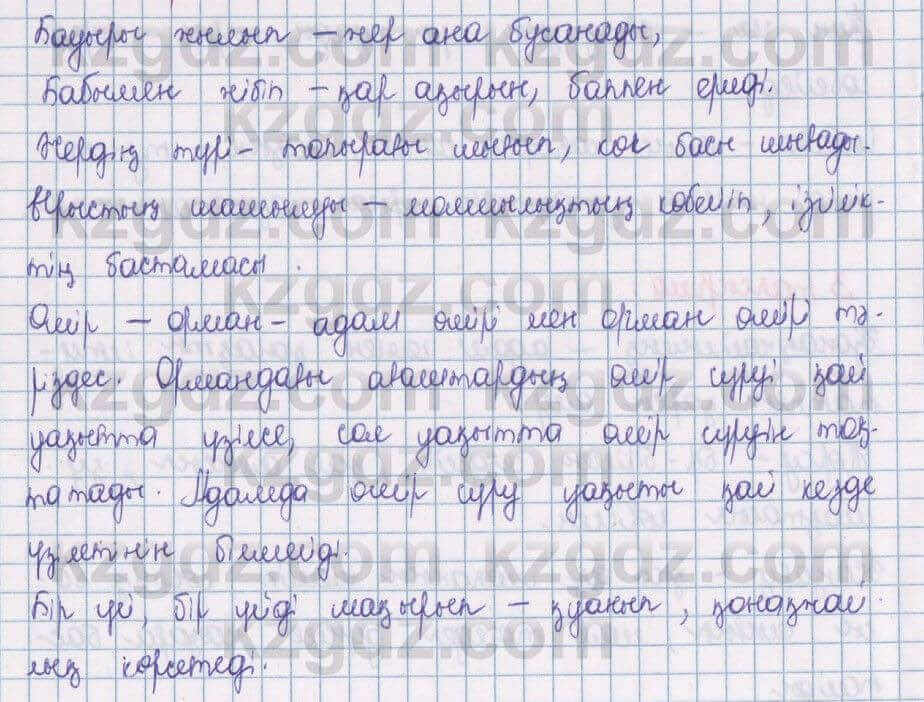 Бауыры жылып – жер ана бусанады,
Бабымен жібіп – қар ақырын, баппен ериді.
Жердің түгі – топырағы шығып, көк басы шығады.
Ырыстың шашылуы – молшылықтың көбейіп, ізгілік-
тің бастамасы.
Өмір – орман – адам өмірі мен орман өмірі тә-
різдес. Ормандағы ағаштардың өмір сүруі қай
уақытта үзілсе, сол уақытта өмір сүруін тоқ-
татады. Адамда өмір сүру уақыты қай кезде
үзілетінін білмейді.
Бір үй, бір үйді шақырып – қуанып, қонақжай
лық көрсетеді.
kzgdz.com